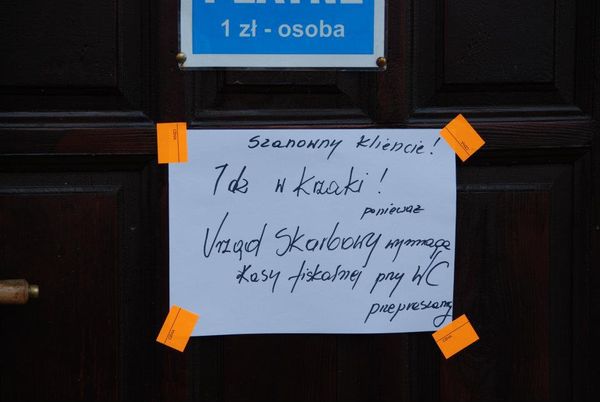 PŁATNE
1 zł - osoba
Szanowny kliencie!
Idź w krzaki!
ponieważ
Urząd Skarbowy wymaga
kasy fiskalnej przy WC
przepraszamy